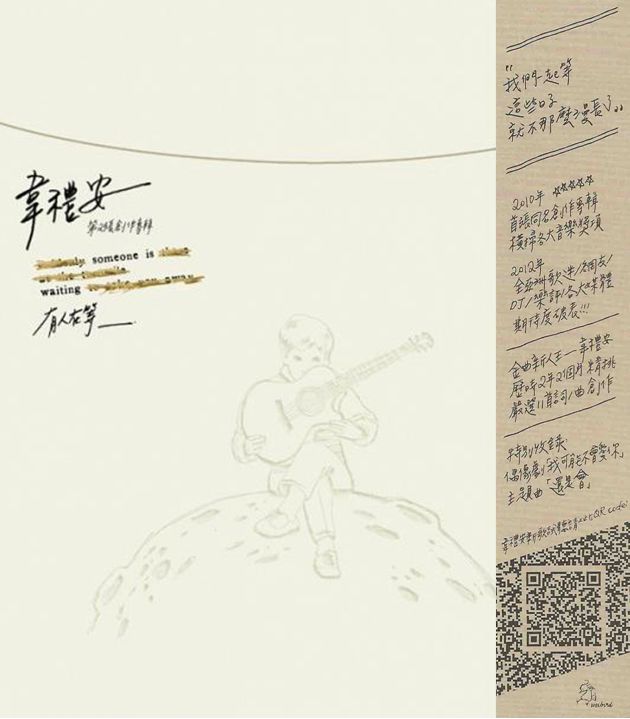 韋禮安
第2張創作專輯
someone is
waiting
有人在等
“我們一起等
這些日子
就不那麼漫長了”
2010年 ☆☆☆☆☆
首張同名創作專輯
橫掃各大音樂獎項
2012年
全亞洲歌迷/網友/
DJ/樂評/各大媒體
期待度破表!!!
金曲新人王—韋禮安
歷時2年2個月 精挑
嚴選11首詞/曲創作
特別收錄:
偶像劇「我可能不會愛你」
主題曲「還是會」
韋禮安新歌試聽請scan QR code!
weibird